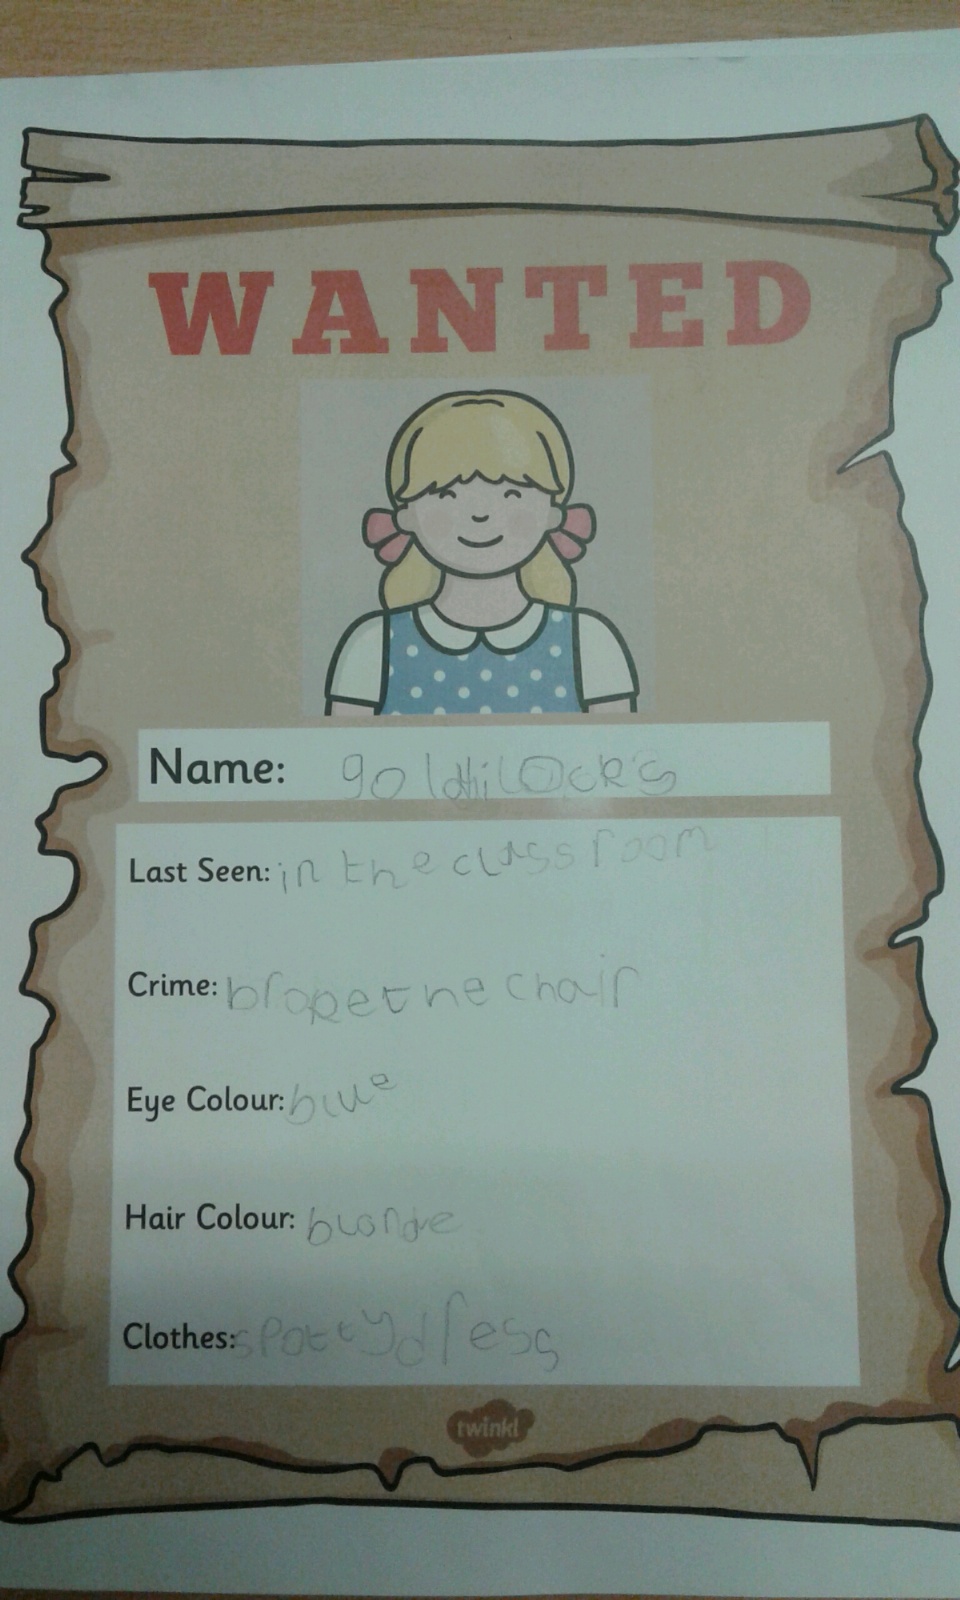 WANTED
Name: goldhilocks
Last Seen: in the classroom
Crime: brope the chair
Eye Colour: blue
Hair Colour: blonde
Clothes: spotty dress
twinkl